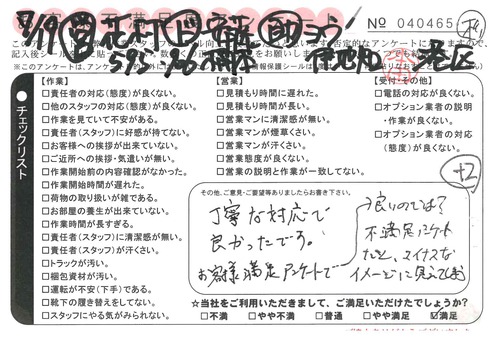 8/19 営 花村 責 安藤 助
No 040465
記入後シールを
※このアンケートは、アンケート
チェックリスト
【作業】
□責任者の対応(態度)が良くない。
□他のスタッフの対応(態度)が良くない。
□作業を見ていて不安がある。
□責任者(スタッフ)に好感が持てない。
□お客様への挨拶が出来ていない。
□ご近所への挨拶・気遣いが無い。
□作業開始前の内容確認がなかった。
□作業開始時間が遅れた。
□荷物の取り扱いが雑である。
□お部屋の養生が出来ていない。
□作業時間が長すぎる。
□責任者(スタッフ)に清潔感が無い。
□責任者(スタッフ)が汗くさい。
□トラックが汚い。
□梱包資材が汚い。
□運転が不安(下手)である。
□靴下の履き替えをしてない。
□スタッフにやる気がみられない。
【営業】
□見積もり時間に遅れた。
□見積もり時間が長い。
□営業マンに清潔感が無い。
□営業マンが煙草くさい。
□営業マンが汗くさい。
□営業態度が良くない。
□営業の説明と作業が一致してない。
【受付・その他】
□電話の対応が良くない。
□オプション業者の説明
・作業が良くない。
□オプション業者の対応
(態度)が良くない。
+2
その他、ご意見・ご要望等ありましたらお書き下さい。
丁寧な対応で
良かったです。
お客様満足アンケートで
良いのでは?
不満足アンケート
だと、マイナスな
イメージに見えてしまう
☆当社をご利用いただきまして、ご満足いただけたでしょうか?
□不満 □やや不満 □普通 □やや満足 ☑満足